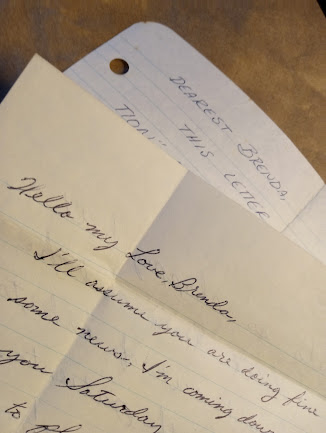 DEAREST BRENDA,
THIS LETTER
Hello my Love, Brenda,
I'll assume you are doing fine
some news. I'm coming down
you Saturday
to